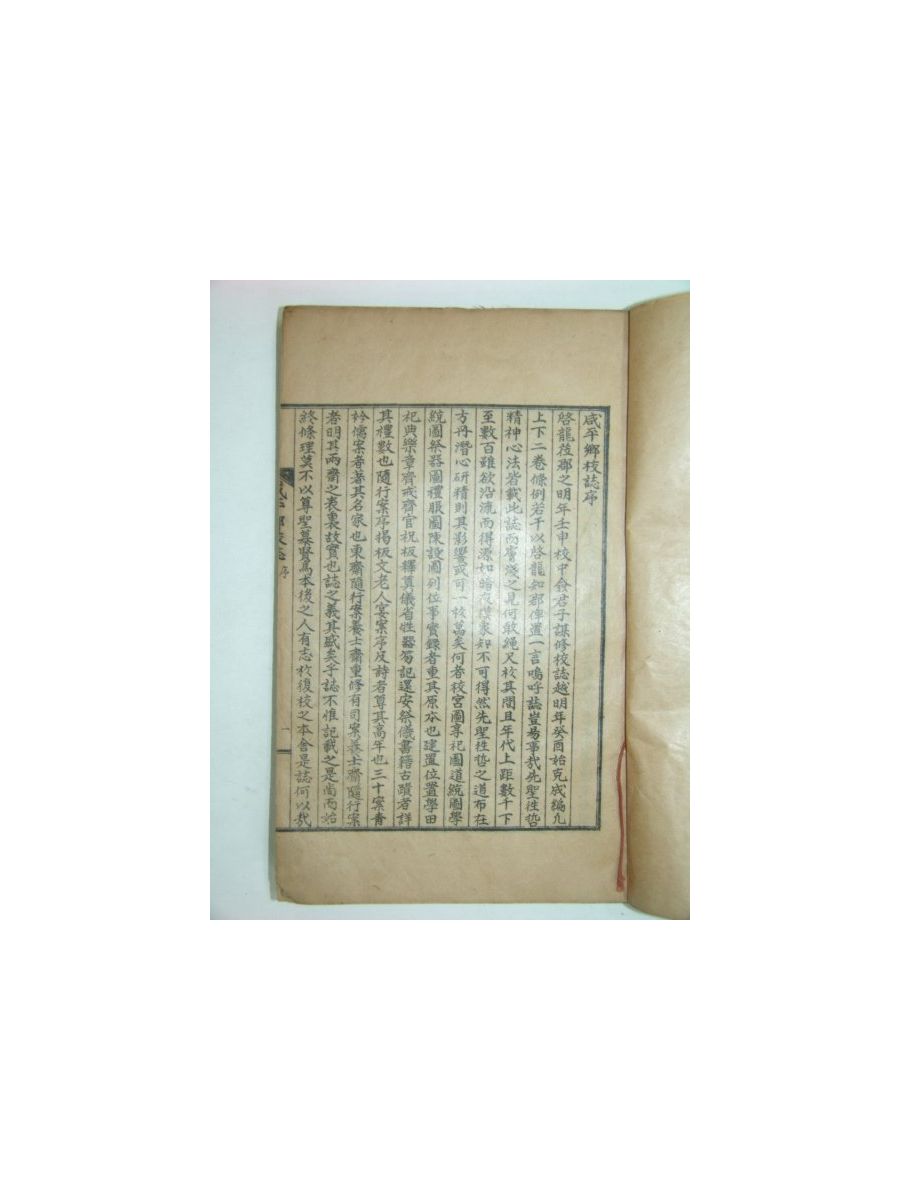 咸平鄉校誌序
啓龍莅郡之明年壬申校中僉君子謀修校誌越明年癸酉始克成編凡
上下二卷條例若干以啓龍知郡俾置一言嗚呼誌豈易事哉先聖往哲
精神心法皆載此誌而膚淺之見何敢繩尺於其間且年代上距數千下
至數百雖欲沿流而得源如暗夜襆象知不可得然先聖往哲之道布在
方冊潛心研精則其影響或可一於萬矣何者校宮圖享祀圖道統圖學
統圖祭器圖禮服圖陳設圖列位事實錄者重其原本也建置位置學田
祀典樂章齊戒齊官祝板釋奠儀省牲器笏記還安祭儀書籍古蹟者詳
其禮數也隨行案序揭板文老人宴案序及詩者尊其高年也三十案青
衿儒案者著其名家也東齋隨行案養士齋重修有司案養士齋隨行案
者明其兩齋之表裏故實也誌之義其盛矣乎誌不惟記載之是尚而始
終條理莫不以尊聖慕賢爲本後之人有志於復校之本舍是誌何以哉
咸平鄉校誌 序 一